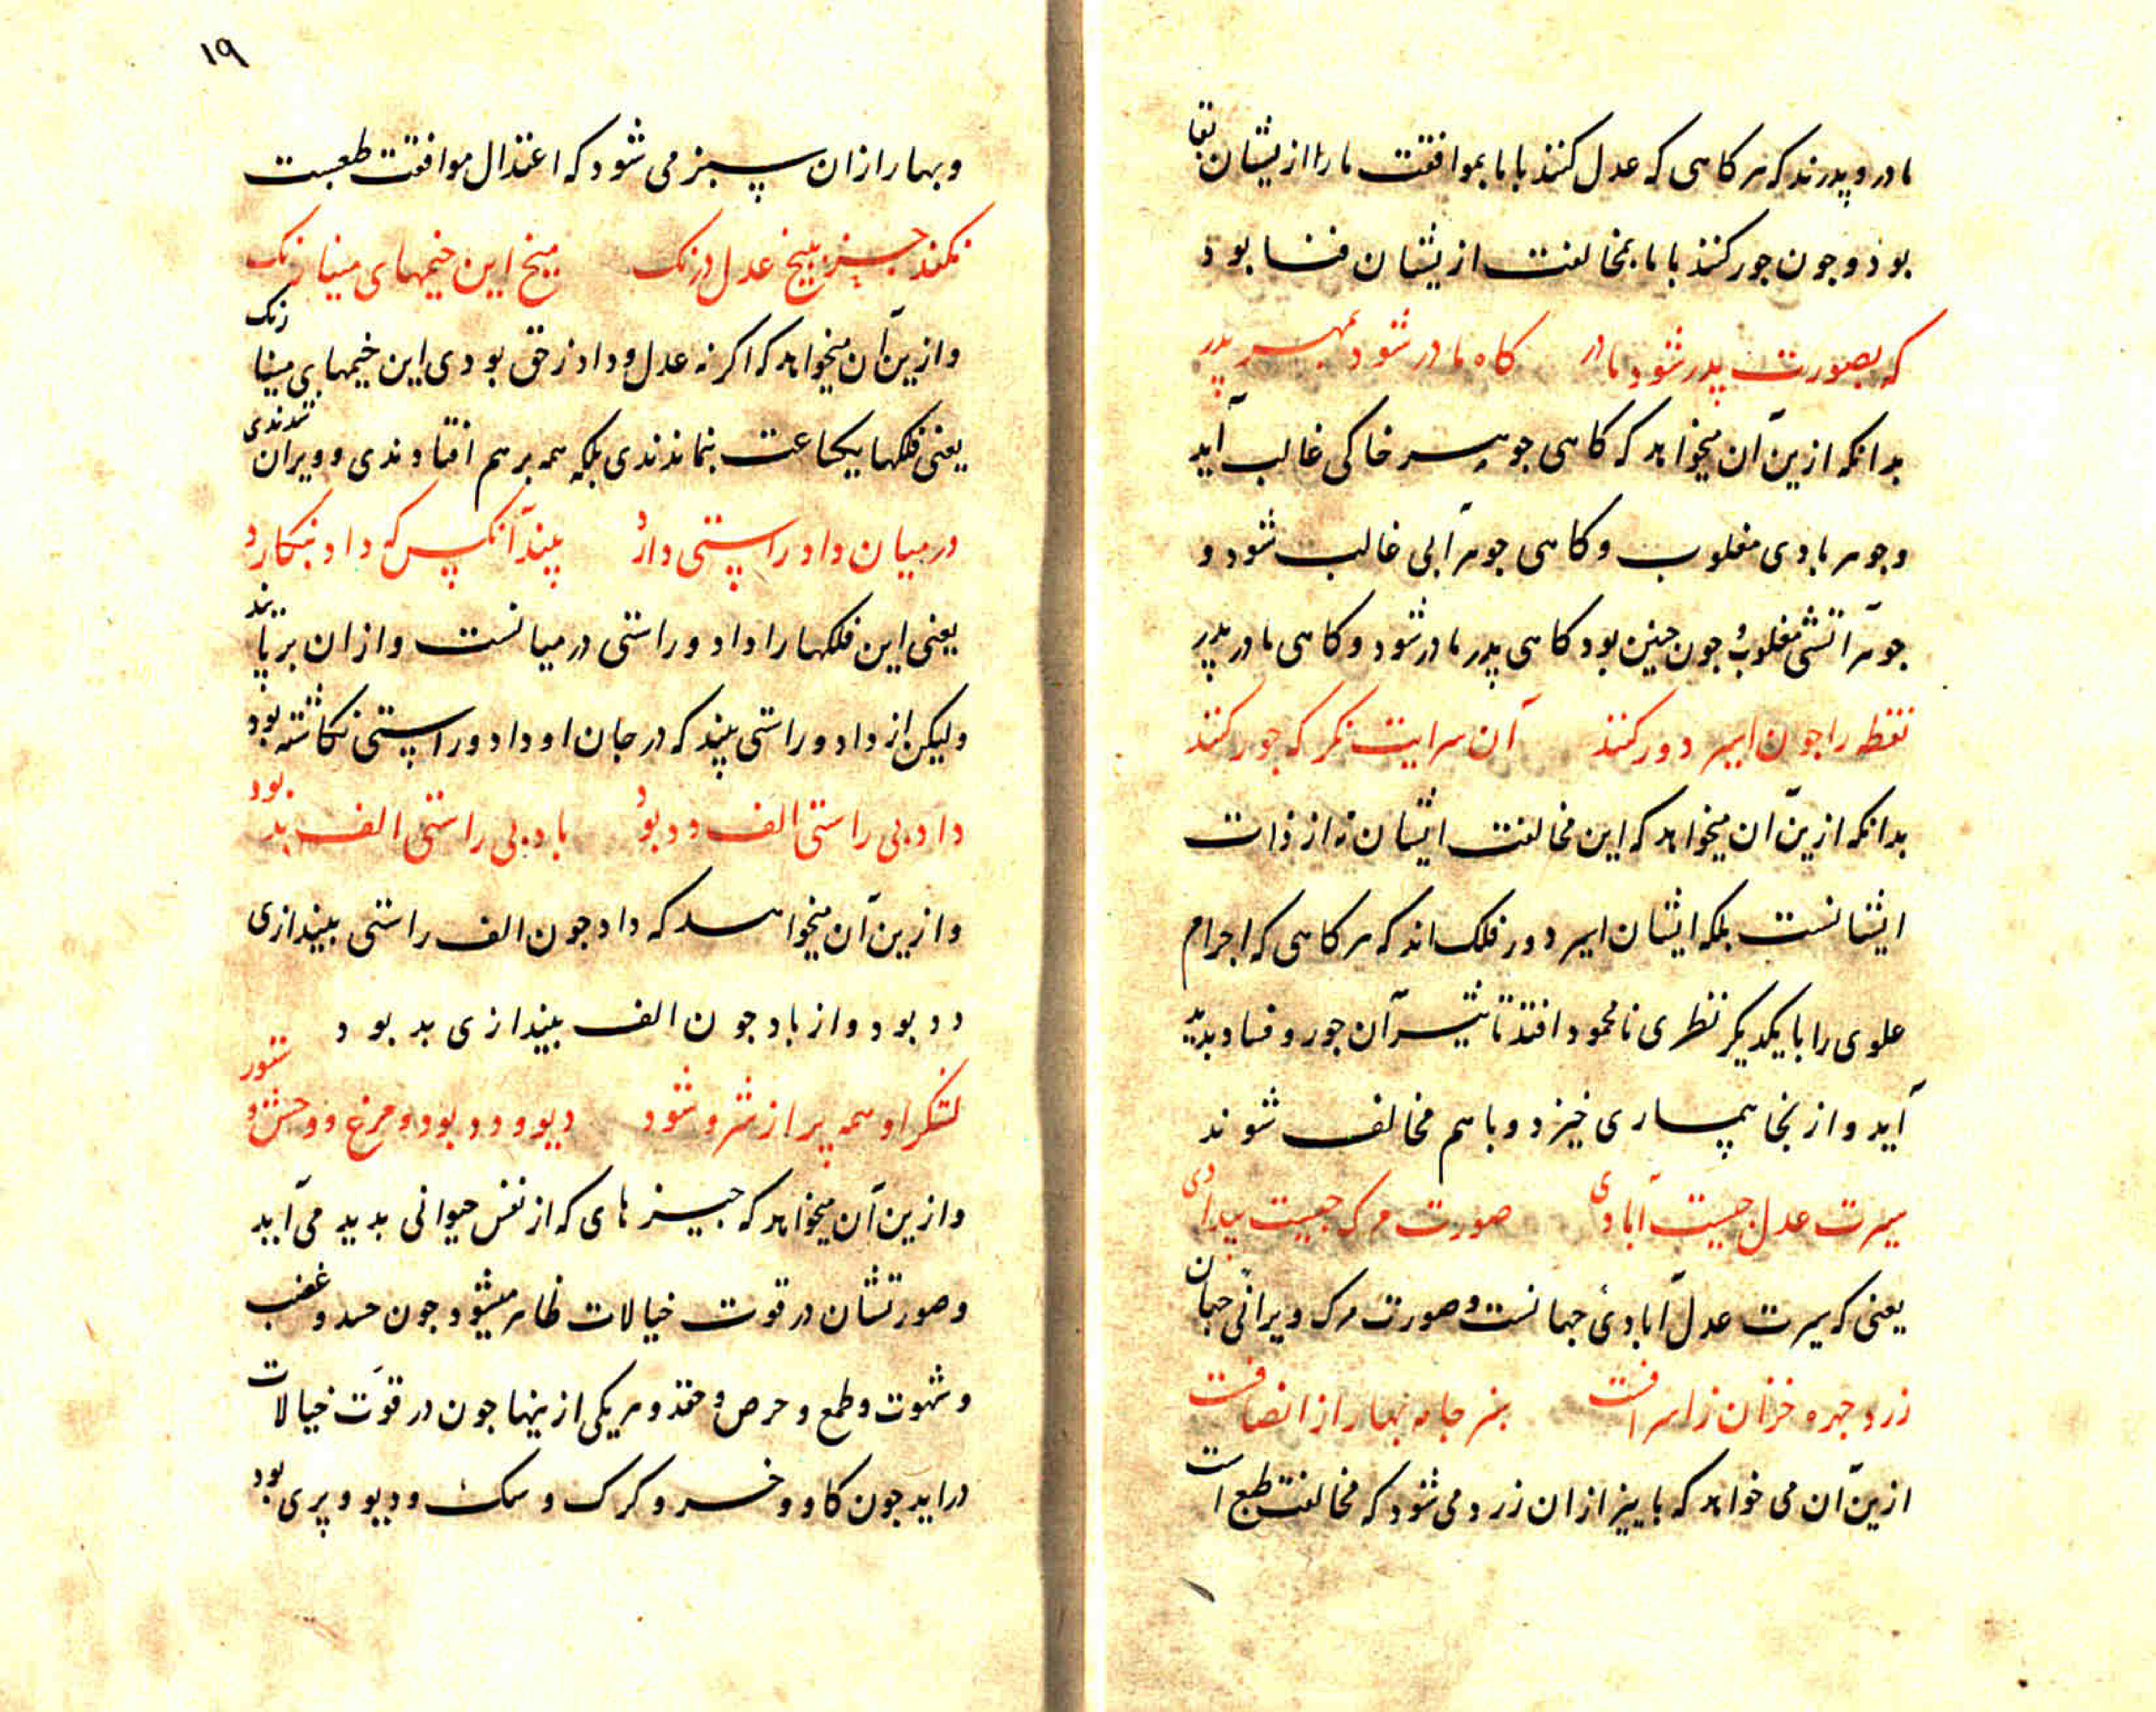 مادر و پدرند که هر کاهی که عدل کنند با ما بموافقت ما را ازیشان بقا
بود و جون جور کنند با ما بمخالفت ازیشان فنا بود
که بصورت پدر شود مادر کاه مادر شود بمهر پدر
بدانکه ازین آن میخواهد که کاهی جوهر خاکی غالب آید
و جوهر بادی مغلوب و کاهی جوهر آبی غالب شود و
جوهر آتشی مغلوب و جون جنین بود کاهی پدر مادر شود و کاهی مادر پدر
نقطه را جون اسیر دور کنند آن سرایت نکر که جور کنند
بدانکه ازین آن میخواهد که این مخالفت ایشان نه از ذات
ایشانست بلکه ایشان اسیر دور فلک اند که هر کاهی که اجرام
علوی را با یکدیکر نظری نامحمود افتد تا تثیر آن جور و فساد بدید
آید و از نجا بیماری خیزد و باهم مخالف شوند
سیرت عدل جیست آبادی صورت مرک جیست بیدادی
یعنی که سیرت عدل آبادی جهانست و صورت مرک ویرانی جهان
زرد جهره خزان ز اسرافست سبز جامه بهار از انصافست
ازین آن می خواهد که باییز از ان زرد می شود که مخالفت طبع است
۱۹
و بهار از ان سبز می شود که اعتدال موافقت طبعست
نکند جز بیخ عدل درنک میخ این خیمهای مینا رنک
و ازین آن میخواهد که اکر نه عدل و داد ز حق بودی این خیمهای مینا رنک
یعنی فلکها یکساعت بنماندندی بلکه همه برهم افتادندی و ویران شدندی
در میان داد راستی دارد بیند آنکس که داد بنکارد
یعنی این فلکها را داد و راستی در میانست و از ان بر پااند
ولیکن از داد و راستی بیند که در جان او داد و راستی نکاشته بود
داد بی راستی الف دد بود باد بی راستی الف بد بود
و ازین آن میخواهد که داد جون الف راستی بیندازی
دد بود و از باد جون الف بیندازی بد بود
لشکر او همه پر از شر و شود دیو و دد بود و مرغ و وحش و ستور
و ازین آن میخواهد که جیز های که از نفس حیوانی بدید می آید
و صورتشان در قوت خیالات ظاهر میشود جون حسد و غضب
و شهوت و طمع و حرص و حقد و هر یکی ازینها جون در قوت خیالات
دراید جون کاو و خر و کرک و سک و دیو و پری بود